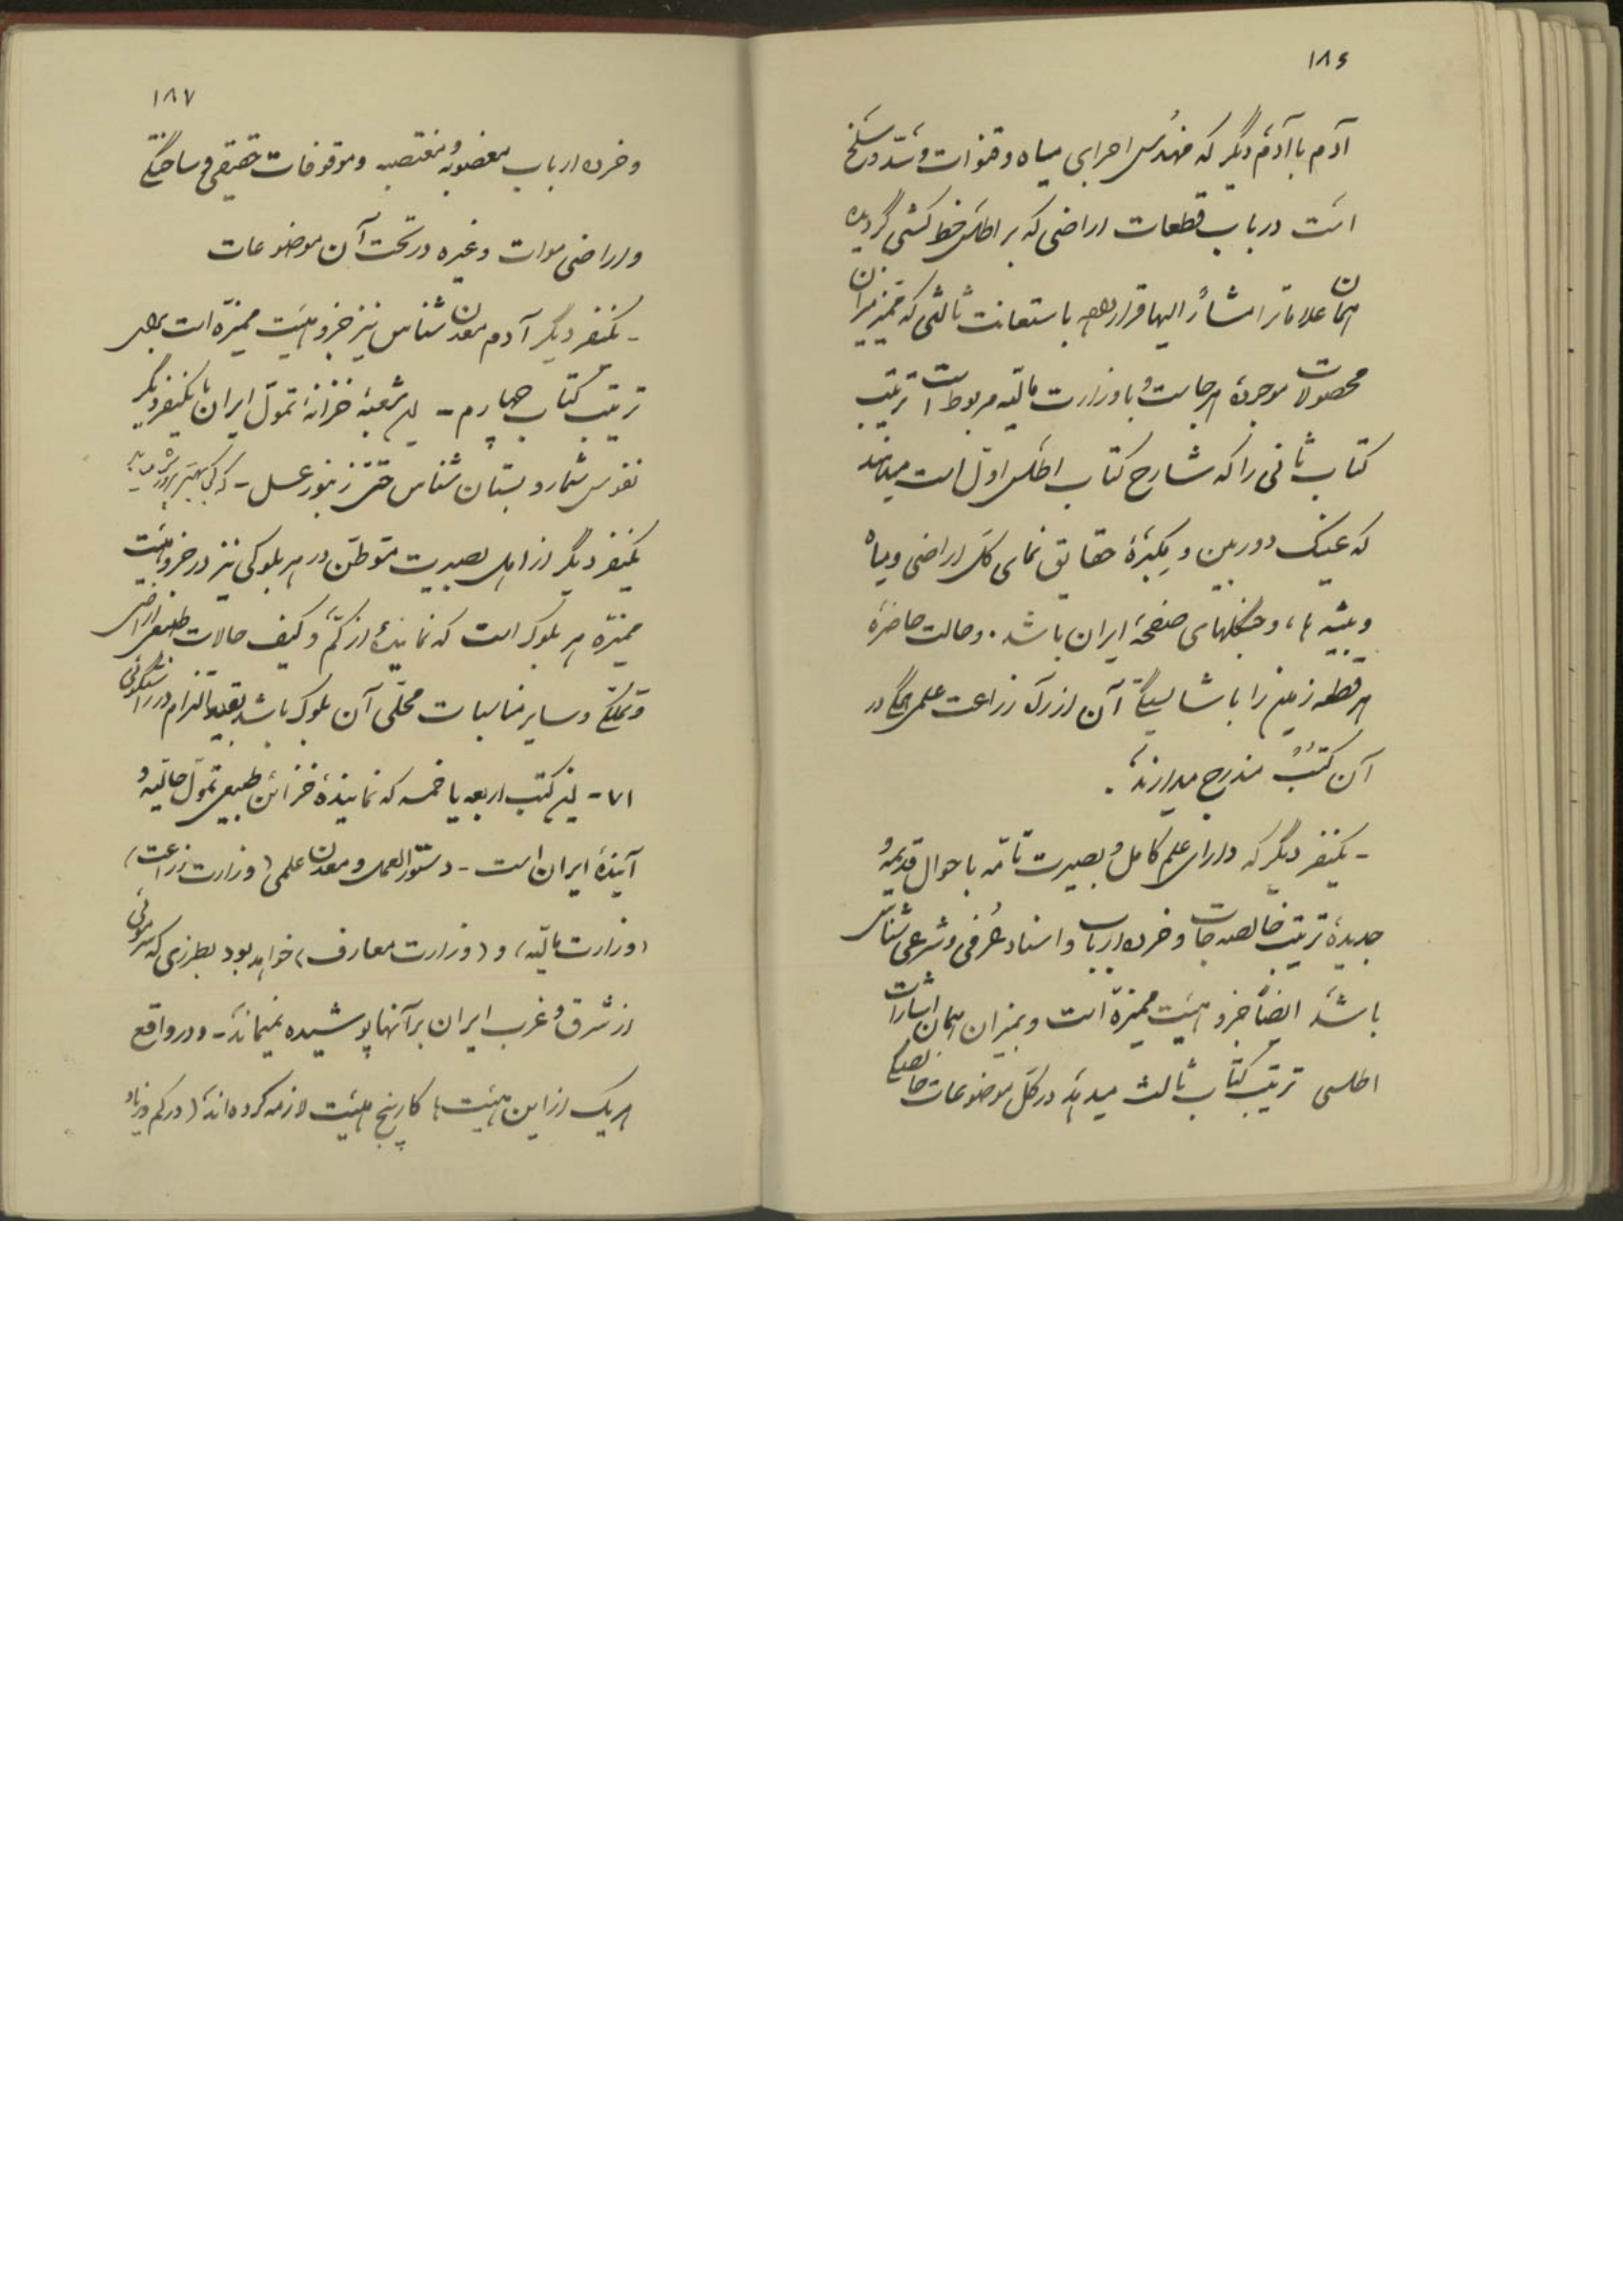 ۱۸۶
آدم با آدم دیگر که مهندس اجرای میاه و قنوات و سد و
است در باب قطعات اراضی که بر اطلس خط کشی گردیده
همان علاماتِ مشارٌ الیها قرار داده باستعانت ثالثی که ممیز میزان
محصولات موجودهٔ هرجاست و با وزارت مالیّه مربوط است ترتیب
کتاب ثانی را که شارح کتاب اطلس اول است میدهند
که عینک دوربین و مکبّرهٔ حقایق نمای کل اراضی و میاه
و بیشه ها، و جنگلهای صفحهٔ ایران باشد. و حالت حاضرهٔ
هر قطعه زمین را با شایستگی آن از رگ زراعت علمی همگی در
آن کتب مندرج میدارند.
- یکنفر دیگر که دارای علم کامل و بصیرت تامّه باحوال قدیمه و
جدیدهٔ ترتیب خالصه جات و خرده ارباب و اسناد عُرفی و شرعی شناس
باشد ایضاً جزو هیئت ممیزه است و بمیزان همان اشارات
اطلسی ترتیب کتاب ثالث میدهد در کل موضوعات خالصگی
۱۸۷
و خرده ارباب مغصوبه و مغتصبه و موقوفات حقیقی و ساختگی
و اراضی موات و غیره در تحت آن موضوعات
- یکنفر دیگر آدم معدن شناس نیز جزو هیئت ممیزه است برای
ترتیب کتاب چهارم - این شعبهٔ خزانهٔ تموّل ایران با یکنفر دیگر
نفوس شمار و بستان شناس حتی زنبور عسل - که
یکنفر دیگر از اهل بصیرت متوطن در هر بلوکی نیز در جزو هیئت
ممیزه هر بلوک است که نمایندهٔ از کمّ و کیف حالات طبیعی اراضی
و تملّکی و سایر مناسبات محلّی آن بلوک باشد بقید التزام در راستگوئی
۷۱ - این کتب اربعه یا خمسه که نمایندهٔ خزائن طبیعی تموّل حالیّه و
آیندهٔ ایران است - دستورالعمل و معدن علمی (وزارت زراعت)
(وزارت مالیّه) و (وزارت معارف) خواهد بود بطرزی که سرموئی
از شرق و غرب ایران بر آنها پوشیده نمیماند - و در واقع
هریک از این هیئت ها کار پنج هیئت لازمه کرده اند (در کم و زیاد